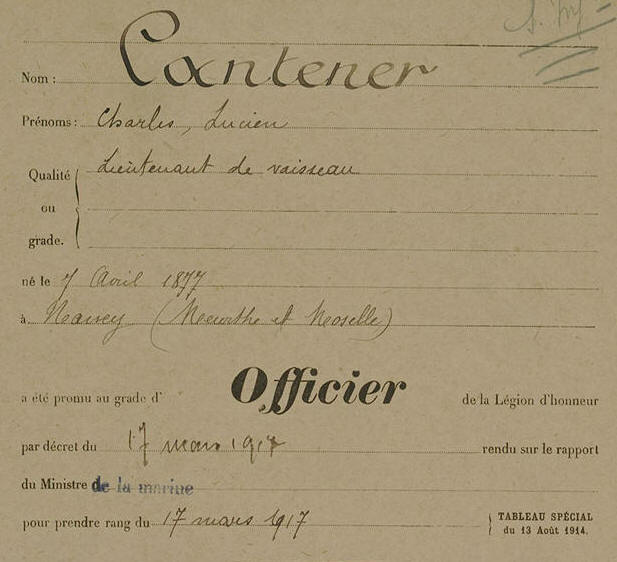 Nom : Cantener
Prénoms : Charles, Lucien
Qualité ou grade. Lieutenant de vaisseau
né le 7 Avril 1877
à Nancy (Meurthe et Moselle)
a été promu au grade d' Officier de la Légion d'honneur
par décret du 17 mars 1917 rendu sur le rapport
du Ministre de la marine
pour prendre rang du 17 mars 1917 TABLEAU SPÉCIAL
du 13 Août 1914.